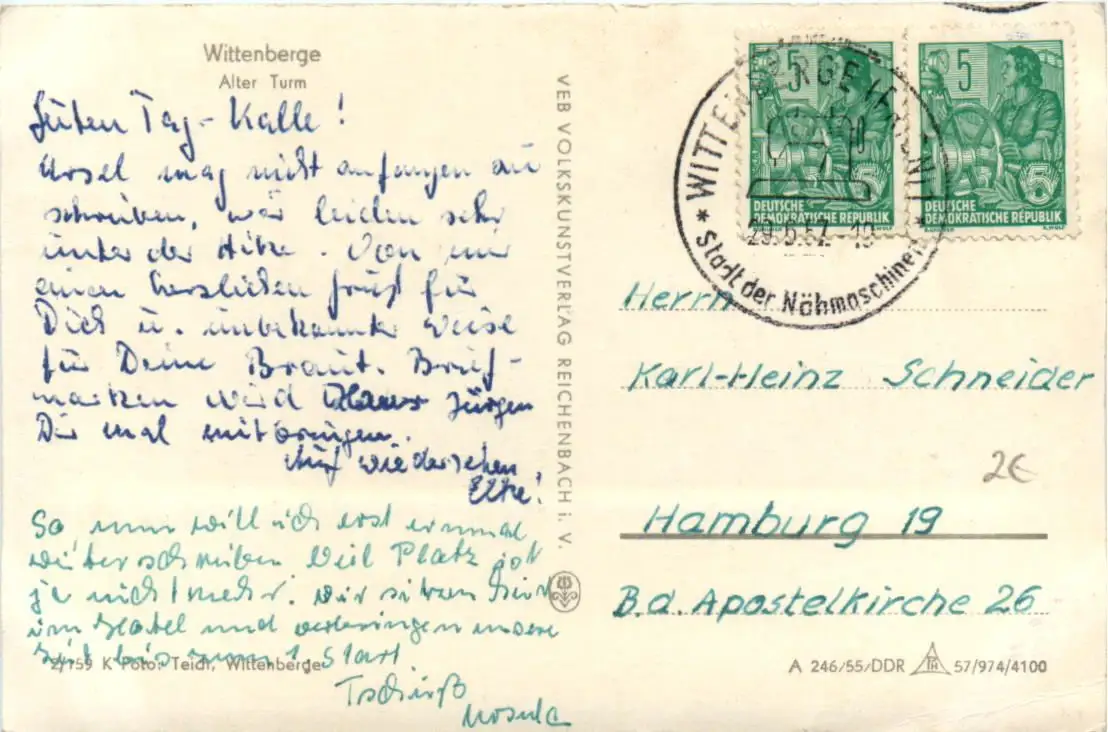 Wittenberge
Alter Turm
Guten Tag - Kalle!
Ursel mag nicht anfangen zu
schreiben, wir leiden sehr
unter der Hitze. Von mir
einen herzlichen Gruß für
Dich u. unbekannter weise
für Deine Braut. Brief-
marken wird Jürgen
Dir mal mitbringen.
Auf wiedersehen
Elke!
So, nun will ich erst einmal
weiterschreiben weil Platz ist
ja nicht mehr. Wir sitzen hier
im Hotel und verbringen unsere
Zeit bis zum Start.
Tschüß
Ursula
2/159 K Foto: Teidt, Wittenberge
VEB VOLKSKUNSTVERLAG REICHENBACH i. V.
5
5
DEUTSCHE
DEMOKRATISCHE REPUBLIK
5
5
DEUTSCHE
DEMOKRATISCHE REPUBLIK
* WITTENBERGE *
Stadt der Nähmaschinen
Herrn
Karl-Heinz Schneider
2€
Hamburg 19
B.d. Apostelkirche 26
A 246/55/DDR 57/974/4100